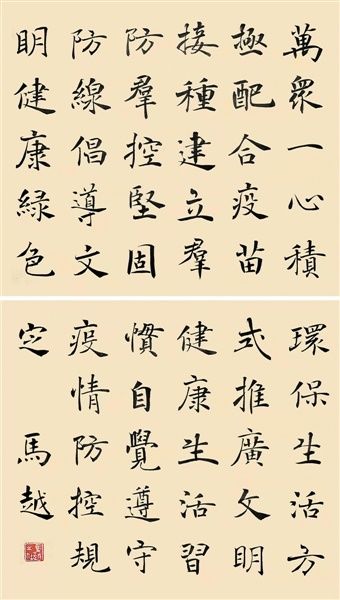 萬眾一心積
極配合疫苗
接種建立羣
防羣控堅固
防線倡導文
明健康綠色
環保生活方
式推廣文明
健康生活習
慣自覺遵守
疫情防控規
定 馬越